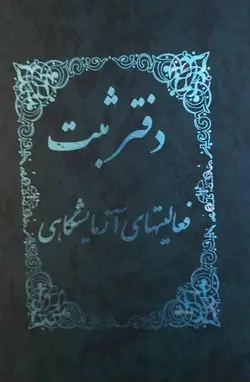 دفتر ثبت
فعالیتهای آزمایشگاهی